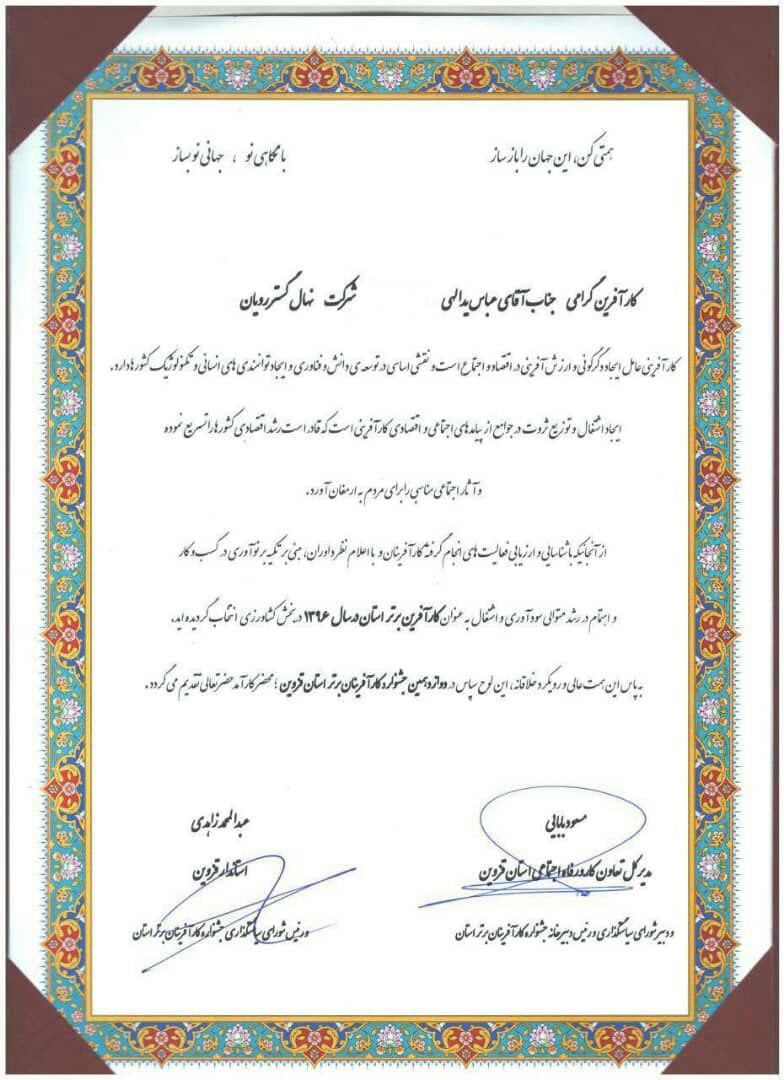 همتی کن، این جهان را باز ساز با نگاهی نو ، جهانی نو بساز
کارآفرین گرامی جناب آقای عباس یدالهی شرکت نهال گستر رویان
کارآفرینی عامل ایجاد دگرگونی و ارزش آفرینی در اقتصاد و اجتماع است و نقشی اساسی در توسعه ی دانش و فناوری و ایجاد توانمندی های انسانی و تکنولوژیک کشورها دارد.
ایجاد اشتغال و توزیع ثروت در جوامع از پیامدهای اجتماعی و اقتصادی کارآفرینی است که قادر است رشد اقتصادی کشورها را تسریع نموده
و آثار اجتماعی مناسبی را برای مردم به ارمغان آورد.
از آنجائیکه با شناسایی و ارزیابی فعالیت های انجام گرفته کارآفرینان و با اعلام نظر داوران، مبنی بر تکیه بر نوآوری در کسب و کار
و اهتمام در رشد متوالی سودآوری و اشتغال به عنوان کارآفرین برتر استان در سال ۱۳۹۶ در بخش کشاورزی انتخاب گردیده اید.
به پاس این همت عالی و رویکرد خلاقانه، این لوح سپاس در دوازدهمین جشنواره کارآفرینان برتر استان قزوین ؛ محضر کارآمد حضرتعالی تقدیم می گردد.
مسعود بابایی عبدالمحمد زاهدی
مدیر کل تعاون کار و رفاه اجتماعی استان قزوین استاندار قزوین
و دبیر شورای سیاستگذاری و رئیس دبیرخانه جشنواره کارآفرینان برتر استان و رئیس شورای سیاستگذاری جشنواره کارآفرینان برتر استان